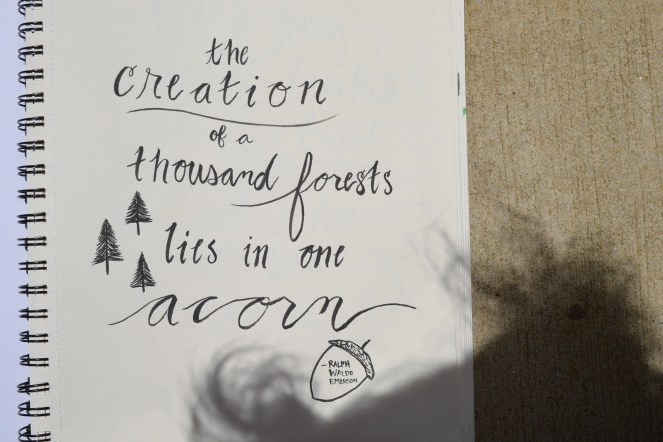 the
creation
of a
thousand forests
lies in one
acorn
- RALPH
WALDO
EMERSON